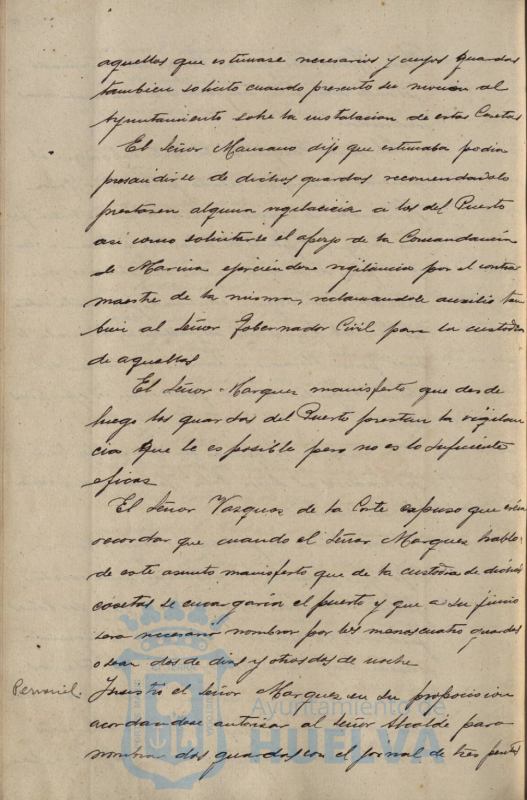 aquellos que estimase necesarios y cuyos guardas
tambien solicito cuando presento su mocion al
Ayuntamiento sobre la instalacion de estas Casetas
El Señor Manzano dijo que estimaba podia
prescindirse de dichos guardas recomendandolo
prestasen alguna vigilancia a los del Puerto
asi como solicitarse el apoyo de la Comandancia
de Marina ejerciendose vigilancia por el contra
maestre de la misma, reclamandole auxilio tam
bien al Señor Gobernador Civil para la custodia
de aquellas
El Señor Marquez manifesto que desde
luego los guardas del Puerto prestan la vigilan
cia que le es posible pero no es lo suficiente
eficaz
El Señor Vazquez de la Corte expuso que
recordar que cuando el Señor Marquez hablo
de este asunto manifesto que de la custodia de dichas
casetas se encargaria el puerto y que a su juicio
sera necesario nombrar por lo menos cuatro guardas
o sean dos de dia y otros dos de noche
Personal. Insistio el Señor Marquez en su proposicion
acordandose autorizar al Señor Alcalde para
nombrar dos guardas con el jornal de tres pesetas
Ayuntamiento de
HUELVA